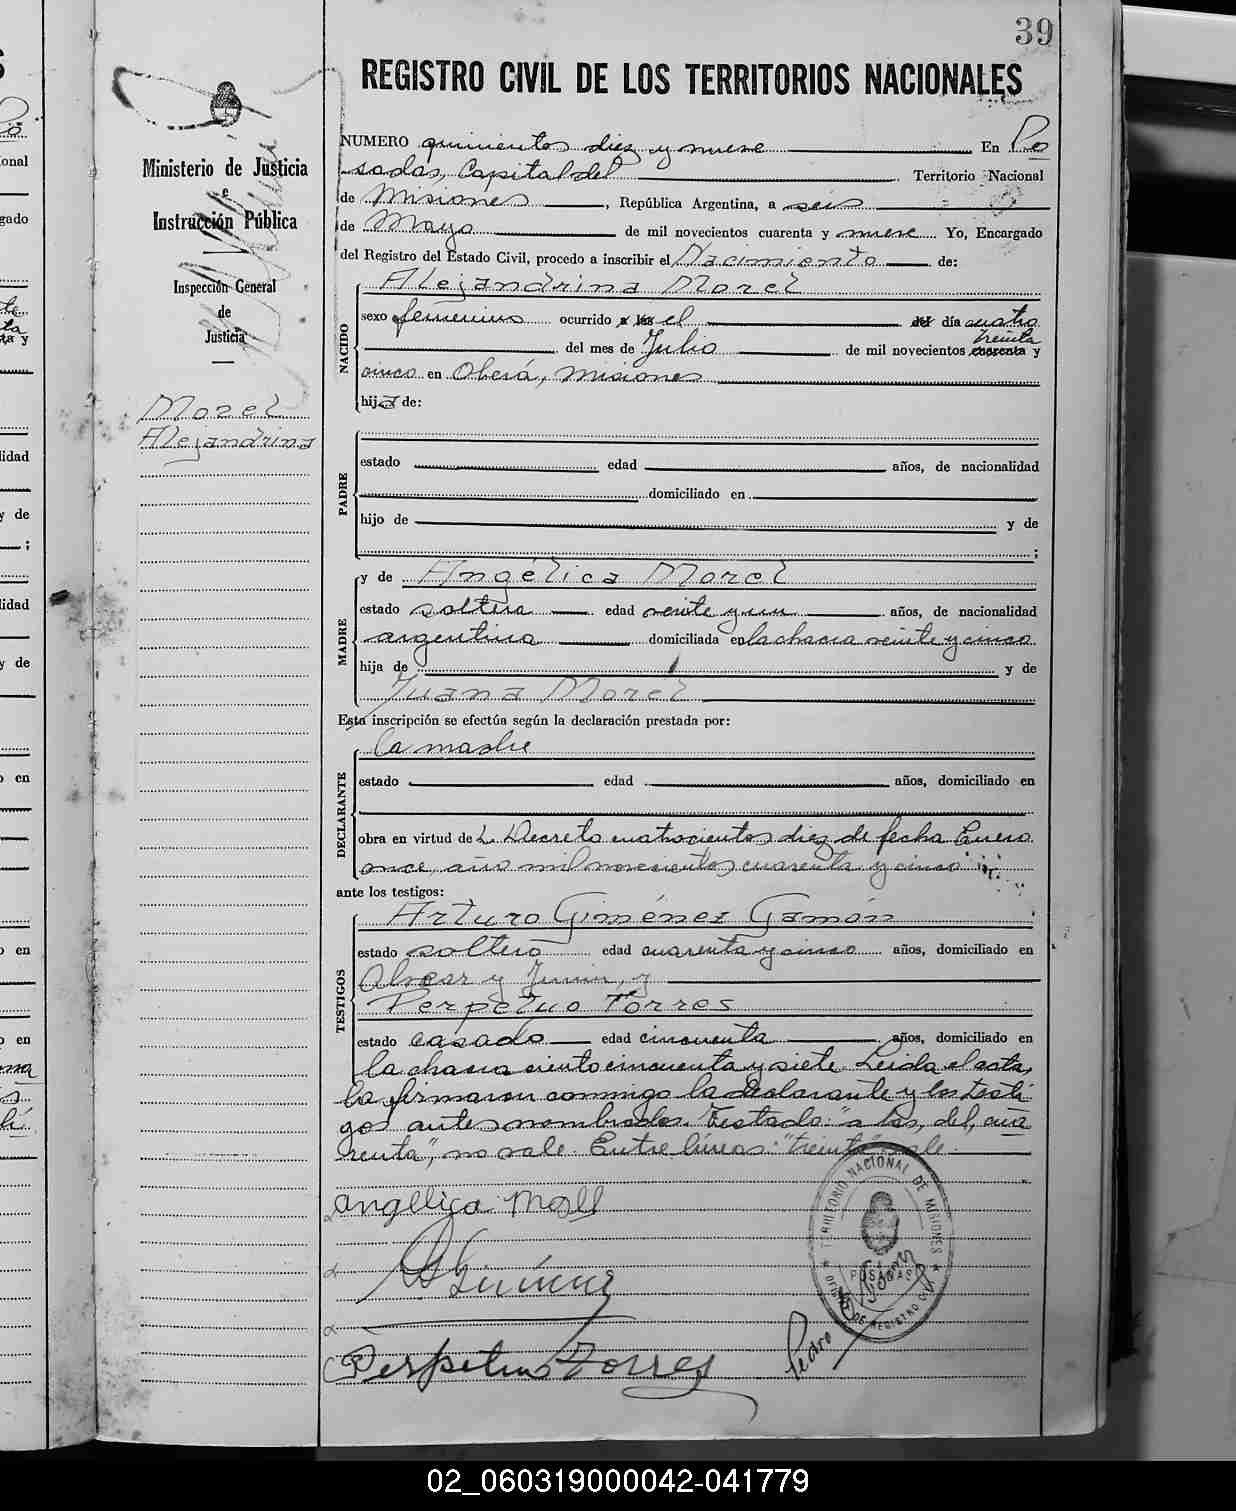 39
REGISTRO CIVIL DE LOS TERRITORIOS NACIONALES
Ministerio de Justicia
e
Instrucción Pública
Inspección General
de
Justicia
Morel
Alejandrina
NUMERO quinientos diez y nueve En Po
sadas, Capital del Territorio Nacional
de Misiones, República Argentina, a seis
de Mayo de mil novecientos cuarenta y nueve Yo, Encargado
del Registro del Estado Civil, procedo a inscribir el Nacimiento de:
NACIDO
Alejandrina Morel
sexo femenino ocurrido a las el del día cuatro
treinta
del mes de Julio de mil novecientos cuarenta y
cinco en Oberá, Misiones
hija de:
PADRE
estado edad años, de nacionalidad
domiciliado en
hijo de y de
;
MADRE
y de Angélica Morel
estado soltera edad veinte y un años, de nacionalidad
argentina domiciliada en la chacra veinte y cinco
hija de y de
Juana Morel
Esta inscripción se efectúa según la declaración prestada por:
DECLARANTE
la madre
estado edad años, domiciliado en
obra en virtud de L Decreto cuatrocientos diez de fecha Enero
once, año mil novecientos cuarenta y cinco
ante los testigos:
TESTIGOS
Arturo Giménez Gamón
estado soltero edad cuarenta y cinco años, domiciliado en
Alvear y Junin, y
Perpetuo Torres
estado casado edad cincuenta años, domiciliado en
la chacra ciento cincuenta y siete. Leida el acta,
la firmaron conmigo la declarante y los testi
gos antes nombrados. Testado: "a las, del, cua
renta", no vale. Entre líneas: "treinta" vale.
angelica Morel
Perpetuo Torres
Pedro
TERRITORIO NACIONAL DE MISIONES
POSADAS
OFICINA DE REGISTRO CIVIL
02_060319000042-041779